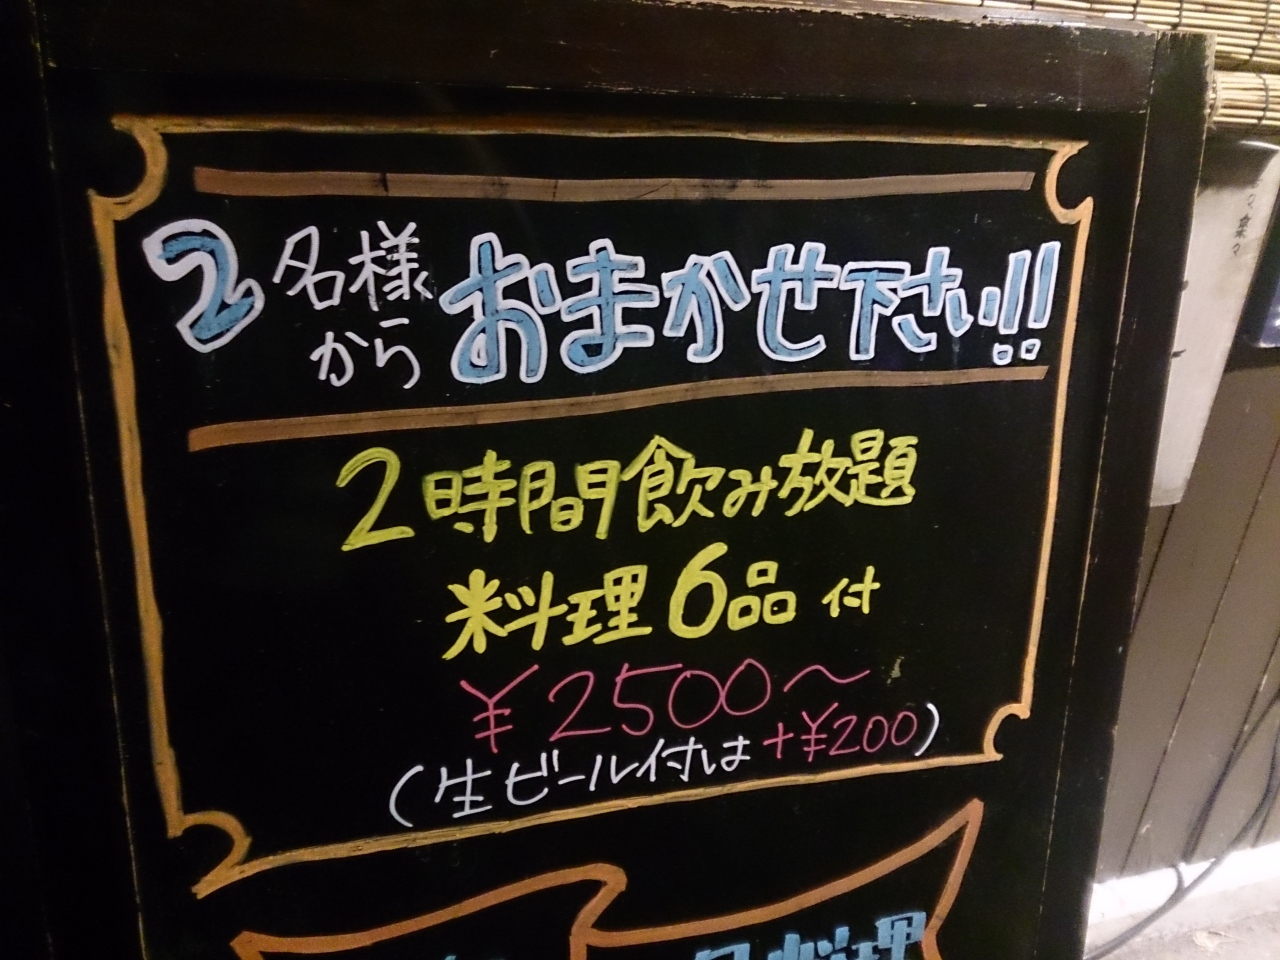 2名様からおまかせ下さい!!
2時間飲み放題
料理6品付
¥2500〜
(生ビール付は+¥200)
料理